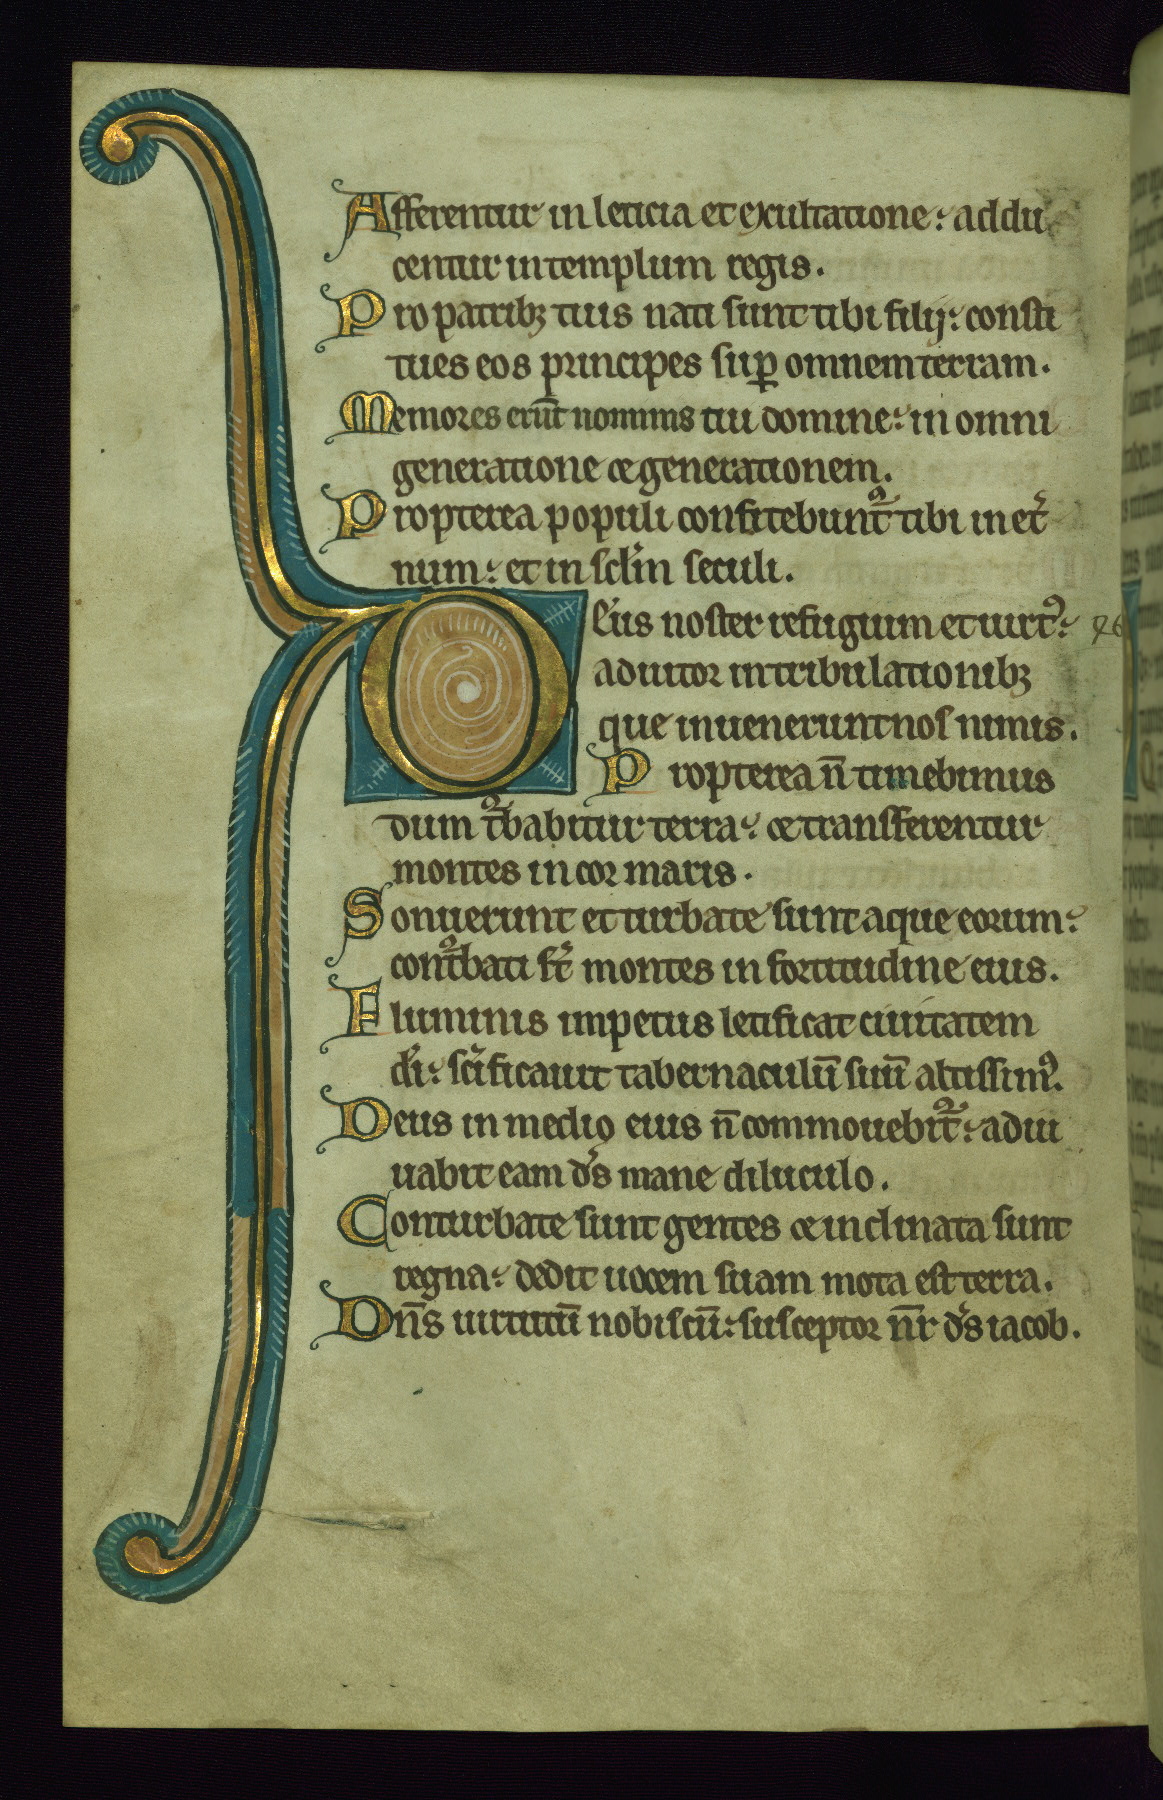 Afferentur in leticia et exultatione: addu
centur in templum regis.
Pro patribꝫ tuis nati sunt tibi filij: consti
tues eos principes suꝑ omnem terram.
Memores erūt nominis tui domine: in omni
generatione et generationem.
Propterea populi confitebunt᷑ tibi in et̾
num: et in sc̾lm seculi.
De̾us noster refugium et uirtꝰ:
adiutor in tribulationibꝫ
que inuenerunt nos nimis.
Propterea n̄ timebimus
dum t᷑babitur terra: et transferentur
montes in cor maris.
Sonuerunt et turbate sunt aque eorum:
cont᷑bati st̾ montes in fortitudine eius.
Fluminis impetus letificat ciuitatem
d̾i: sc̾ificauit tabernaculū suū altissimꝰ.
Deus in medio eius n̄ commouebit᷑: adiu
uabit eam d̾s mane diluculo.
Conturbate sunt gentes et inclinata sunt
regna: dedit uocem suam mota est terra.
Dn̄s uirtutū nobiscū: susceptor nr̄ d̾s iacob.